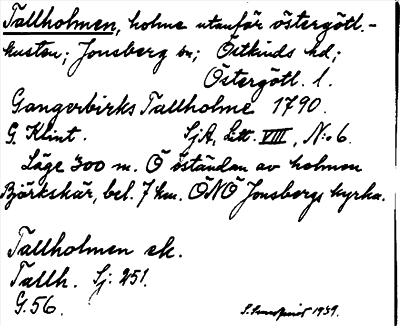 Tallholmen, holme utanför östergötl.-
kusten; Jonsberg sn; Östkinds hd;
Östergötl. l.
Gangerbirks Tallholme 1790.
G. Klint. SjA, Litt. VIII, N:o 6.
Läge 300 m. O östandan av holmen
Björkskär, bel. 7 km. ÖNÖ Jonsbergs kyrka.
Tallholmen ek.
Tallh. Sj: 251.
G. 56. 1939.